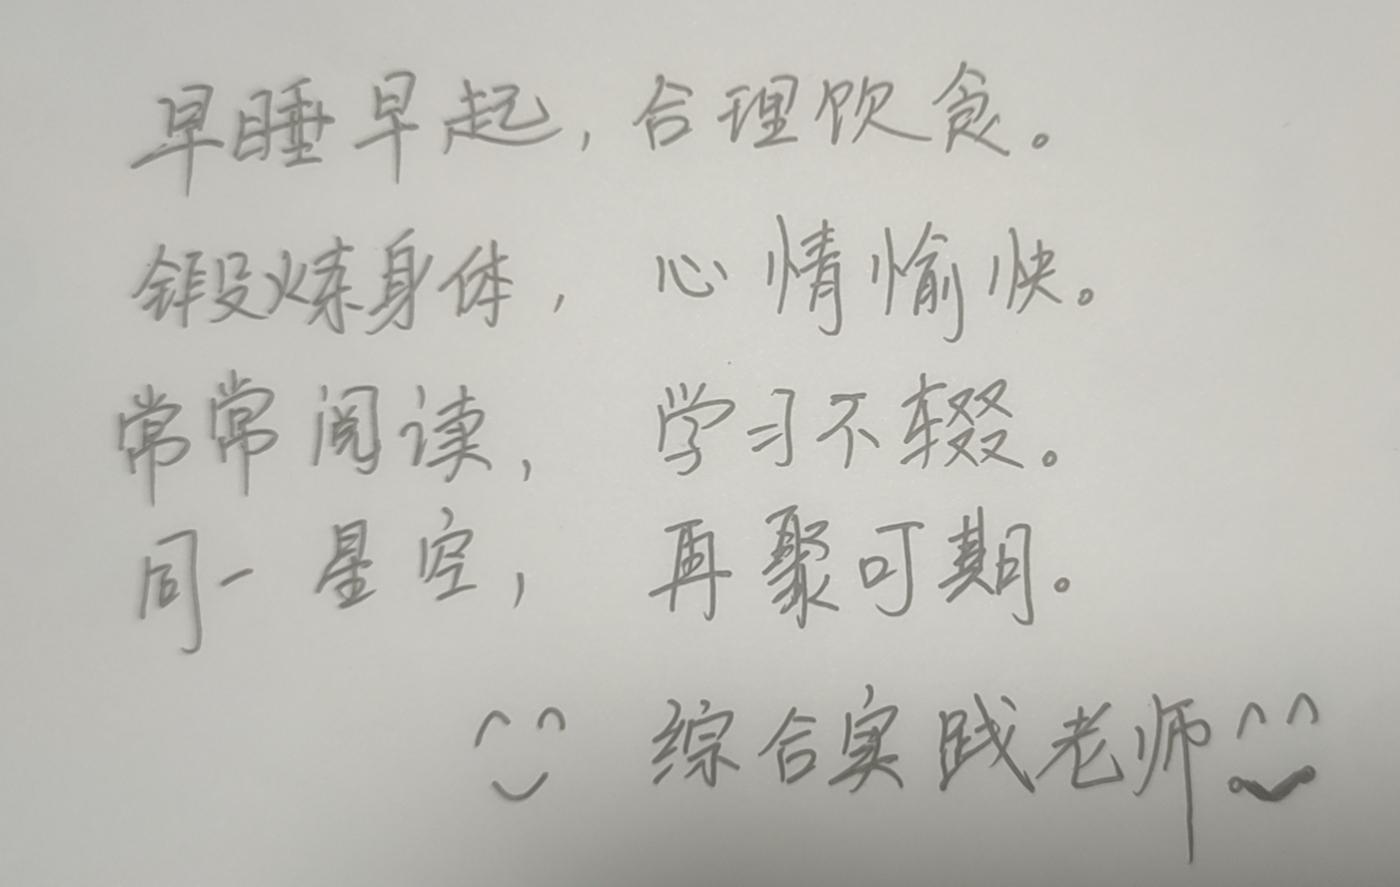 早睡早起，合理饮食。
锻炼身体，心情愉快。
常常阅读，学习不辍。
同一星空，再聚可期。
综合实践老师